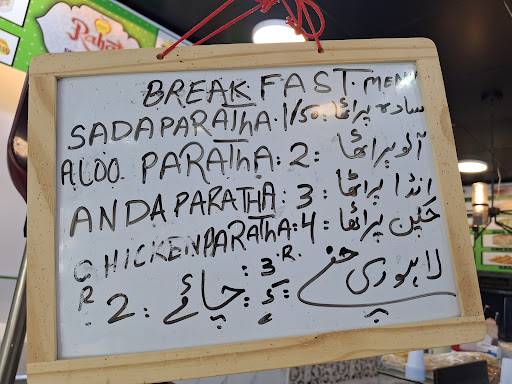 Rahat
BREAKFAST. MENU
SADA PARATHA. 1/50. سادہ پراٹھا
ALOO. PARATHA: 2: آلو پراٹھا
ANDA PARATHA: 3 انڈا پراٹھا
CHICKEN PARATHA: 4: چکن پراٹھا
R. 2: چائے: 3 R. لاہوری چنے